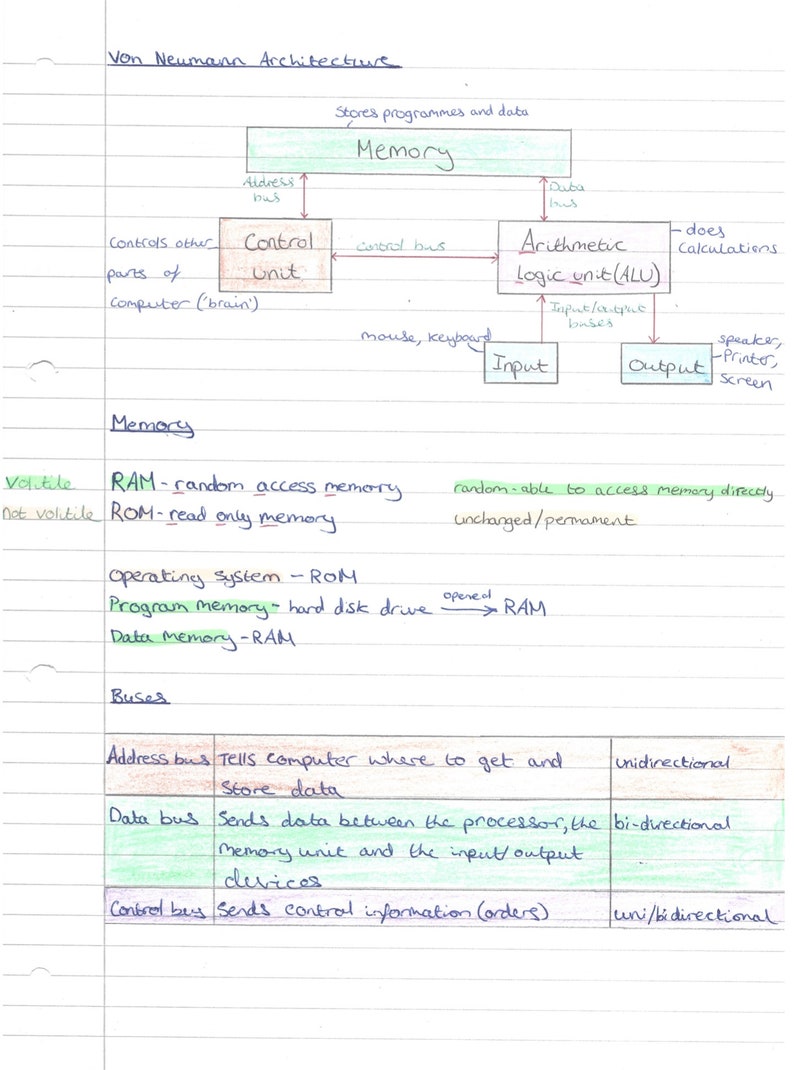 Von Neumann Architecture
Stores programmes and data
Memory
Address
bus
Data
bus
Controls other
parts of
computer ('brain')
Control
unit
control bus
Arithmetic
Logic unit (ALU)
- does
calculations
Input/output
buses
mouse, keyboard
Input
Output
speaker,
Printer,
Screen
Memory
Volitile
RAM - random access memory
random - able to access memory directly
Not volitile
ROM - read only memory
unchanged/permament
Operating system - ROM
Program memory - hard disk drive opened → RAM
Data memory - RAM
Buses
Address bus
Tells computer where to get and
store data
unidirectional
Data bus
Sends data between the processor, the
memory unit and the input/output
devices
bi-directional
Control bus
Sends control information (orders)
uni/bidirectional